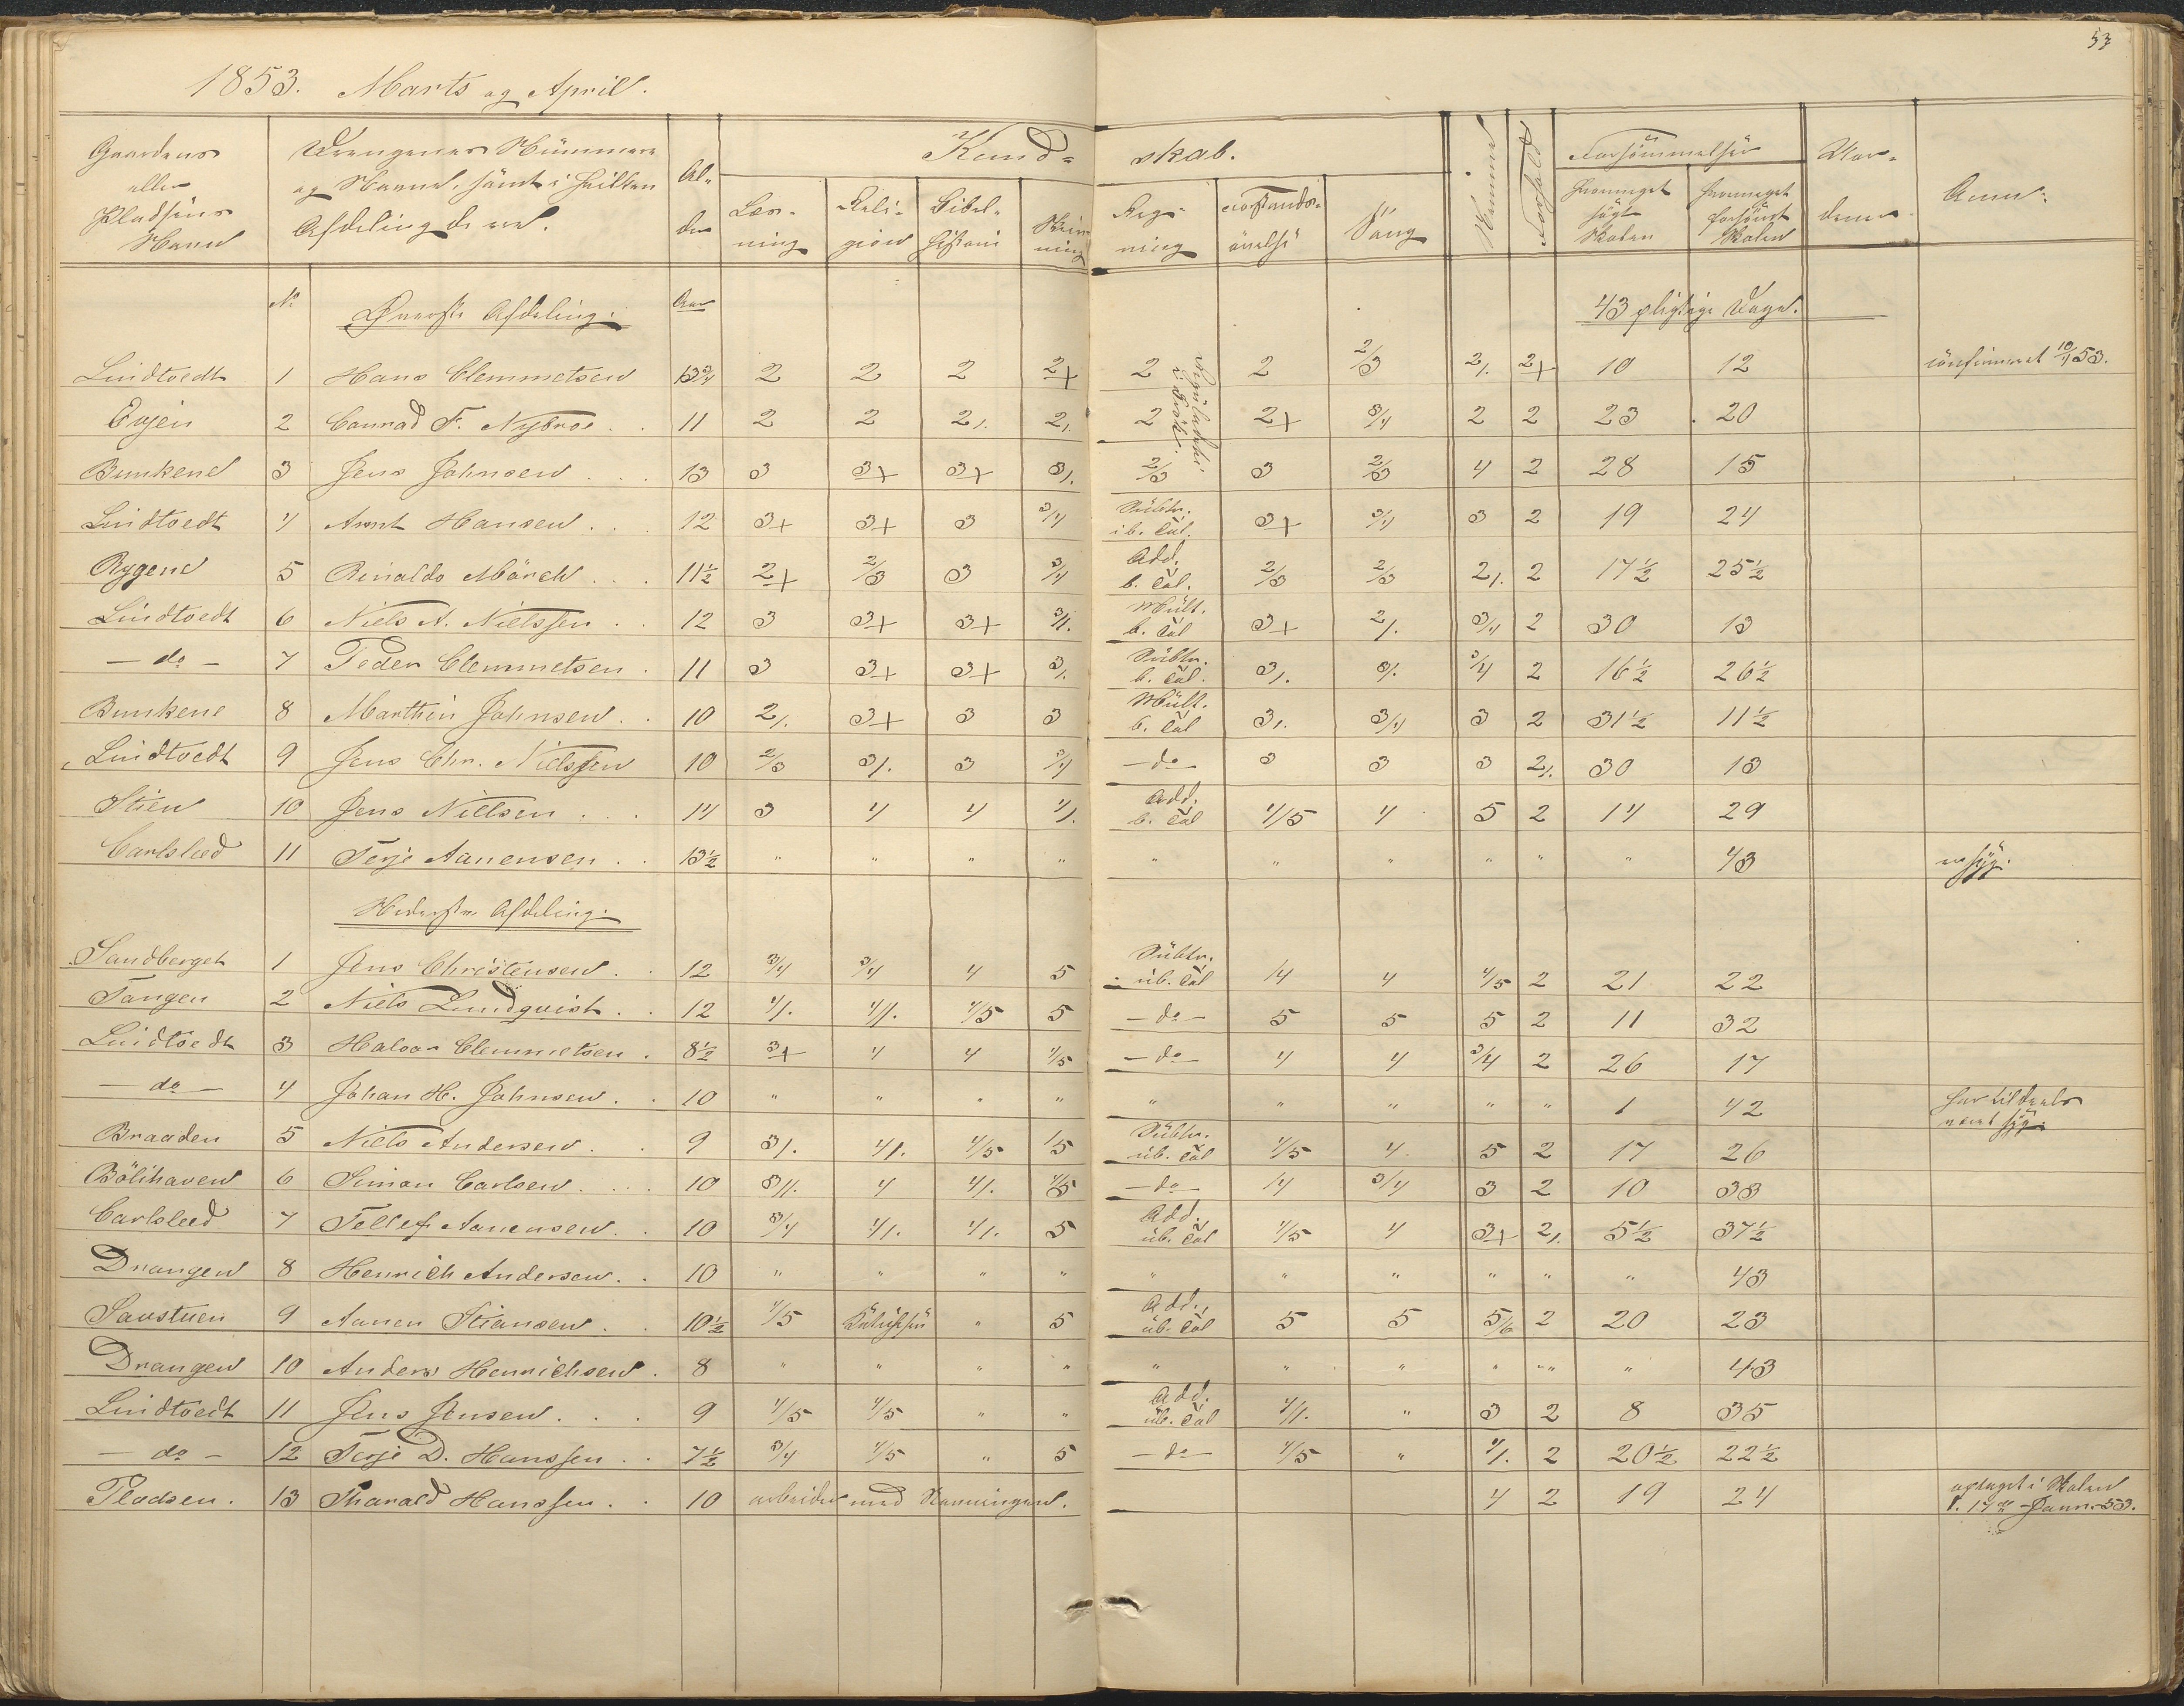 53
1853. Marts og April.
Gaardens eller Pladsens Navn | Drengenes Nummere og Navne, samt i hvilken Afdeling de ere. | Al-der | Kund-skab. | Nemme | Forhold | Forsömmelser | Anm:
Læs-ning | Reli-gion | Bibel-historie | Skriv-ning | Reg-ning | Forstands-övelse | Sang | hvormeget sögt Skolen | hvormeget forsömt Skolen
No | Överste Afdeling. | Aar | 43 pligtige Dage.
Lindtvedt | 1 | Hans Clemmetsen | 13 3/4 | 2 | 2 | 2 | 2+ | 2 | 2 | 2/3 | 2/. | 2+ | 10 | 12 | confirmeret 10/4 53.
Evjen | 2 | Conrad F. Nybroe . . | 11 | 2 | 2 | 2/. | 2/. | 2 | 2+ | 3/4 | 2 | 2 | 23 | 20
Bunkene | 3 | Jens Johnsen . . . | 13 | 3 | 3+ | 3+ | 3/. | 2/3 | 3 | 2/3 | 4 | 2 | 28 | 15
Lindtvedt | 4 | Arnt Hansen . . . | 12 | 3+ | 3+ | 3 | 3/4 | Subtr. i b. Tal. | 3+ | 3/4 | 3 | 2 | 19 | 24
Rygene | 5 | Rinaldo Mörch . . . | 11 1/2 | 2+ | 2/3 | 3 | 3/4 | Add. b. Tal. | 2/3 | 2/3 | 2/. | 2 | 17 1/2 | 25 1/2
Lindtvedt | 6 | Niels A. Nielssen . . | 12 | 3 | 3+ | 3+ | 3/. | Mult. b. Tal | 3+ | 2/. | 3/4 | 2 | 30 | 13
— do — | 7 | Peder Clemmetsen . | 11 | 3 | 3+ | 3+ | 3/. | Subtr. b. Tal. | 3/. | 3/. | 3/4 | 2 | 16 1/2 | 26 1/2
Bunkene | 8 | Marthin Johnsen . . | 10 | 2/. | 3+ | 3 | 3 | Mult. b. Tal | 3/. | 3/4 | 3 | 2 | 31 1/2 | 11 1/2
Lindtvedt | 9 | Jens Chr. Nielssen | 10 | 2/3 | 3/. | 3 | 3/4 | — do — | 3 | 3 | 3 | 2/. | 30 | 13
Stien | 10 | Jens Nielsen . . . | 14 | 3 | 4 | 4 | 4/. | Add. b. Tal | 4/5 | 4 | 5 | 2 | 14 | 29
Carlsleed | 11 | Terje Aanensen . . | 13 1/2 | " | " | " | " | " | " | " | " | " | " | 43 | er syg.
Nederste Afdeling.
Sandberget | 1 | Jens Christensen . . | 12 | 3/4 | 3/4 | 4 | 5 | Subtr. ub. Tal | 4 | 4 | 4/5 | 2 | 21 | 22
Tangen | 2 | Niels Lundqvist . . | 12 | 4/. | 4/. | 4/5 | 5 | — do — | 5 | 5 | 5 | 2 | 11 | 32
Lindtvedt | 3 | Halvor Clemmetsen . | 8 1/2 | 3+ | 4 | 4 | 4/5 | — do — | 4 | 4 | 3/4 | 2 | 26 | 17
— do — | 4 | Johan H. Johnsen . . | 10 | " | " | " | " | " | " | " | " | " | 1 | 42 | har tildeels været syg.
Braaden | 5 | Niels Andersen . . | 9 | 3/. | 4/. | 4/5 | 5 | Subtr. ub. Tal | 4/5 | 4 | 5 | 2 | 17 | 26
Bölihaven | 6 | Simon Carlsen . . . | 10 | 3/. | 4 | 4/. | 4/5 | — do — | 4 | 3/4 | 3 | 2 | 10 | 33
Carlsleed | 7 | Tellef Aanensen . . | 10 | 3/4 | 4/. | 4/. | 5 | Add. ub. Tal | 4/5 | 4 | 3+ | 2/. | 5 1/2 | 37 1/2
Drangen | 8 | Henrich Andersen . . | 10 | " | " | " | " | " | " | " | " | " | " | 43
Saustuen | 9 | Aanen Stiansen . . | 10 1/2 | 4/5 | " | 5 | Add. ub. Tal | 5 | 5 | 5/6 | 2 | 20 | 23
Drangen | 10 | Anders Henrichsen . | 8 | " | " | " | " | " | " | " | " | " " | " | 43
Lindtvedt | 11 | Jens Jensen . . . | 9 | 4/5 | 4/5 | " | " | Add. ub. Tal | 4/. | " | 3 | 2 | 8 | 35
— do — | 12 | Terje D. Hanssen . . | 7 1/2 | 3/4 | 4/5 | " | 5 | — do — | 4/5 | " | 4/. | 2 | 20 1/2 | 22 1/2
Pladsen . | 13 | Tharald Hanssen . . | 10 | arbeider med Stavningen. | 4 | 2 | 19 | 24 | optaget i Skolen d. 17de Jann. 53.